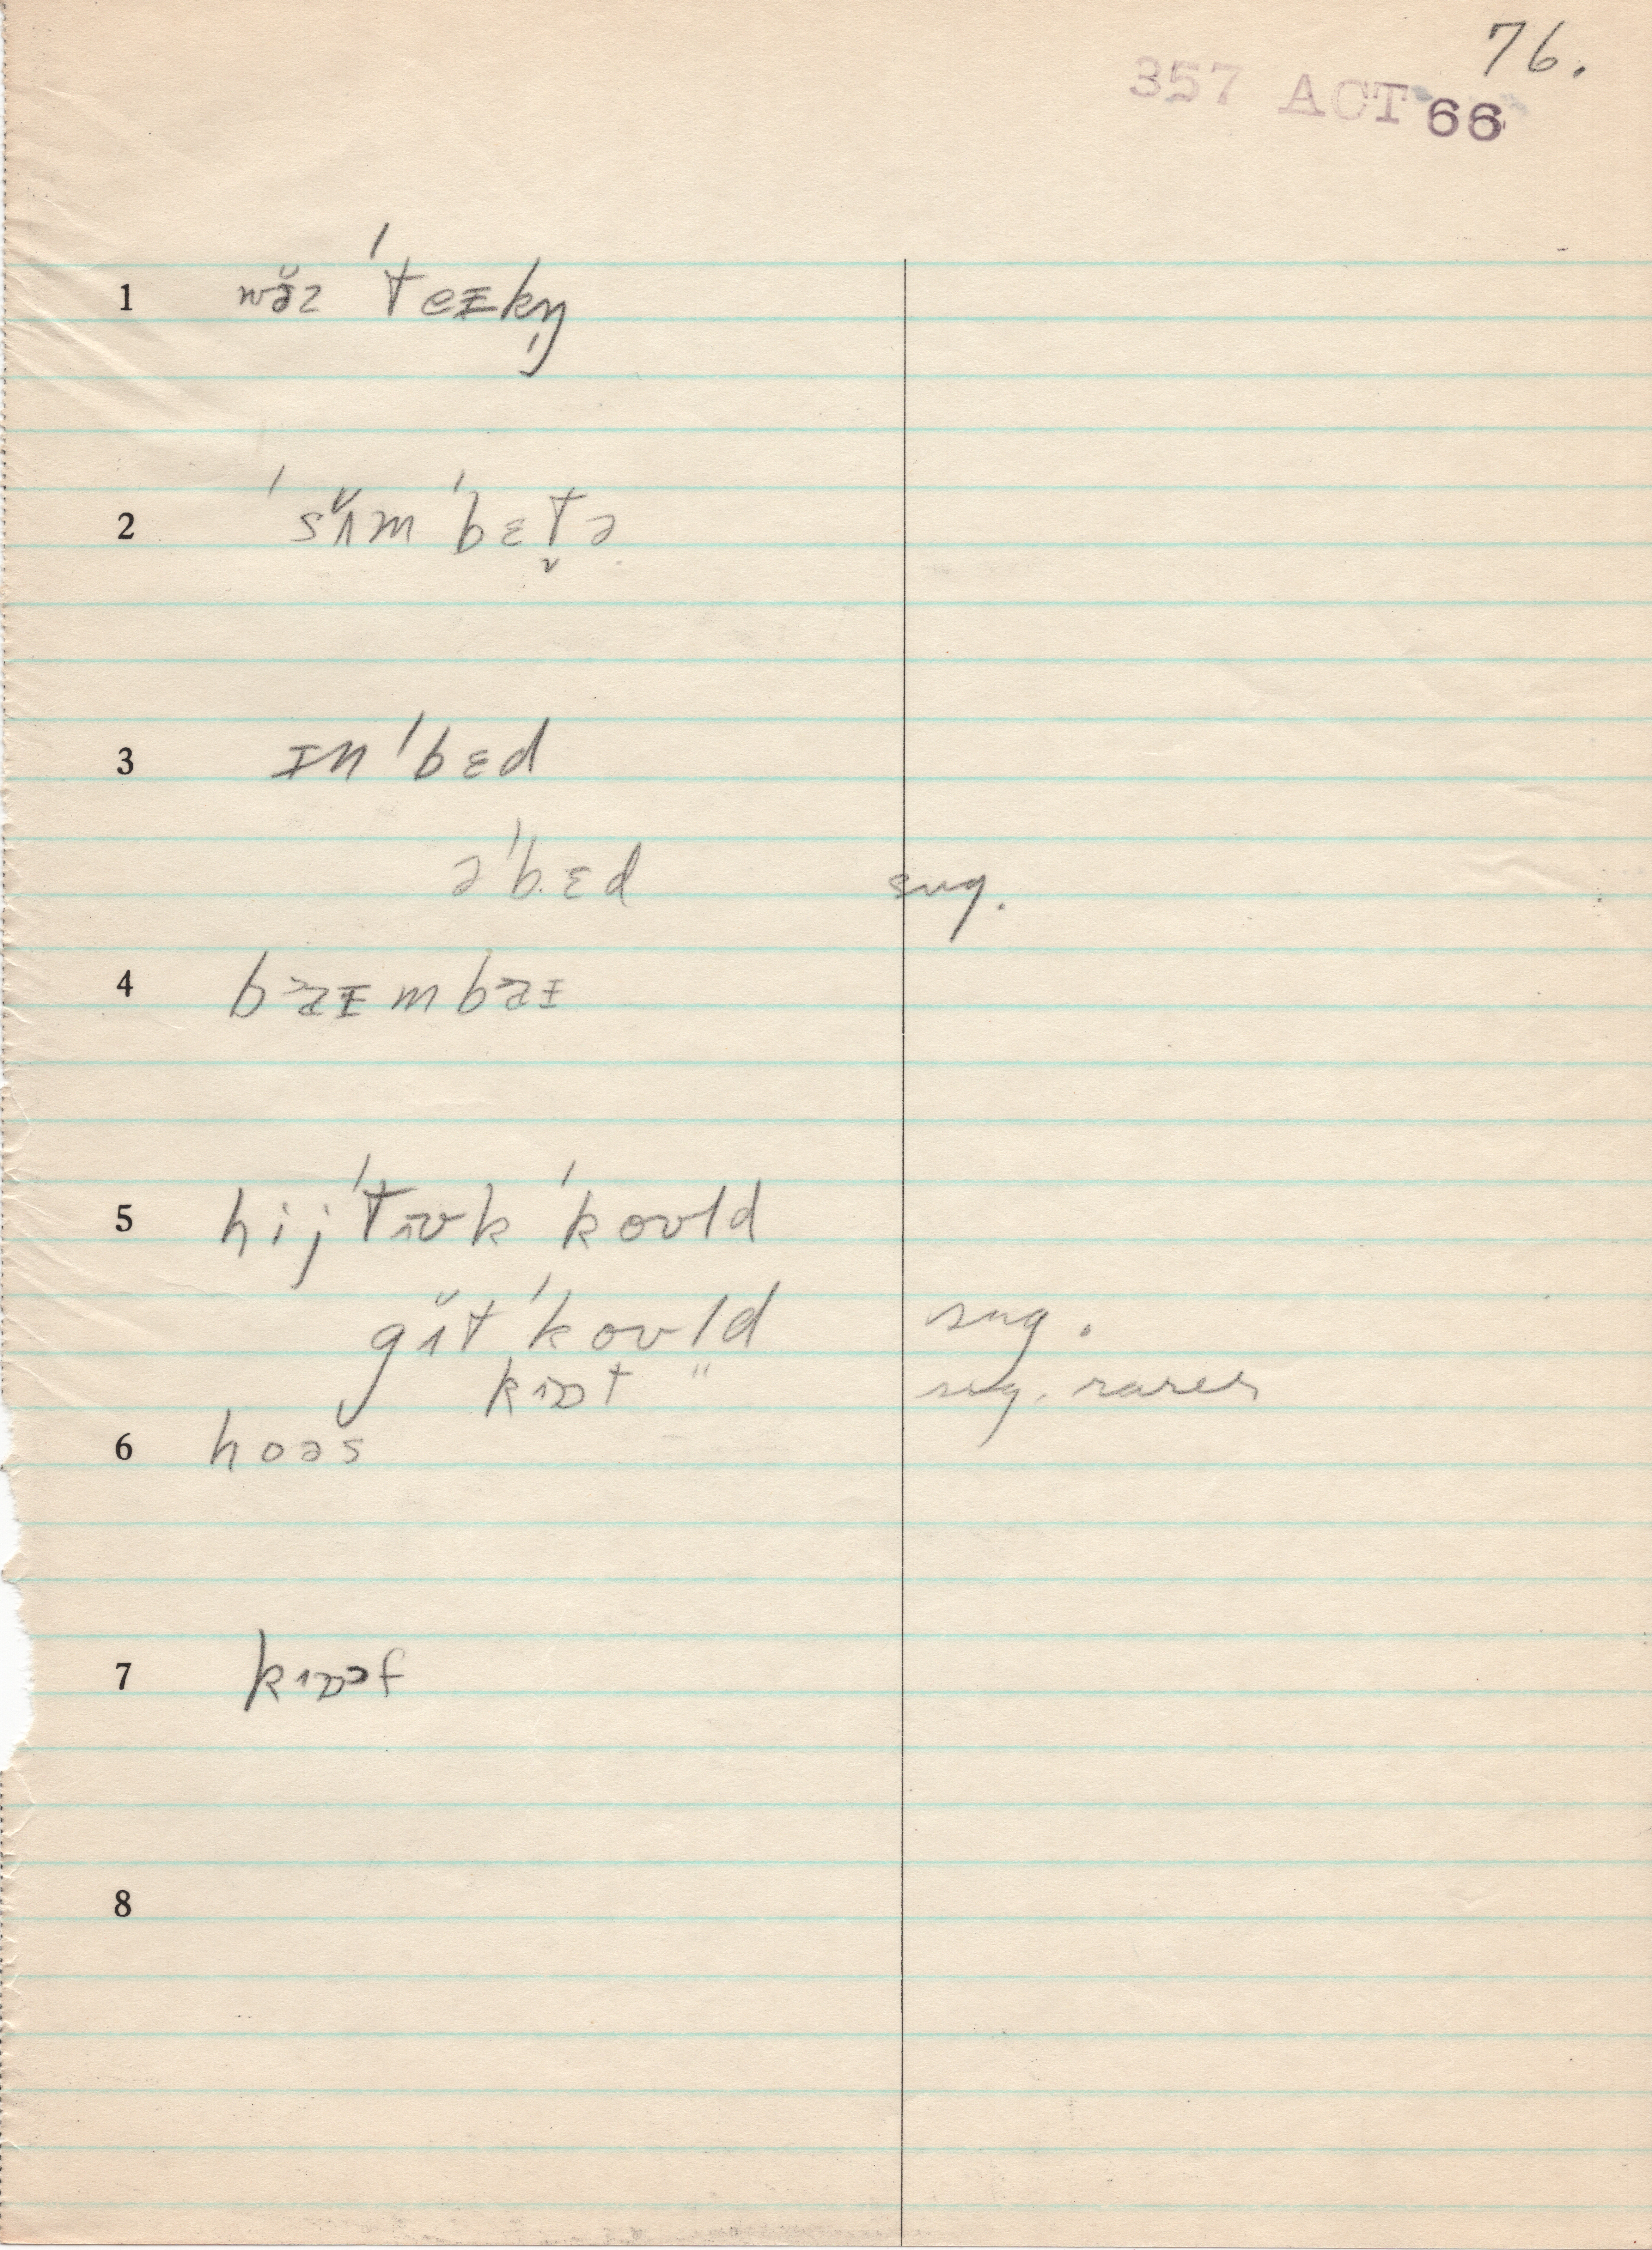 76.
357 ACT 66
1 wə̆z ˈteɪkŋ̍
2 ˈsʌ̆m ˈbɛt̬ə
3 ɪn ˈbɛd
əˈbɛd sug.
4 baɪmbaɪ
5 hij ˈtɹʊk ˈkoʊld
gɑ̆t ˈkoʊld sug.
kɔt " sug. rarer
6 hoəs
7 kɔəf
8